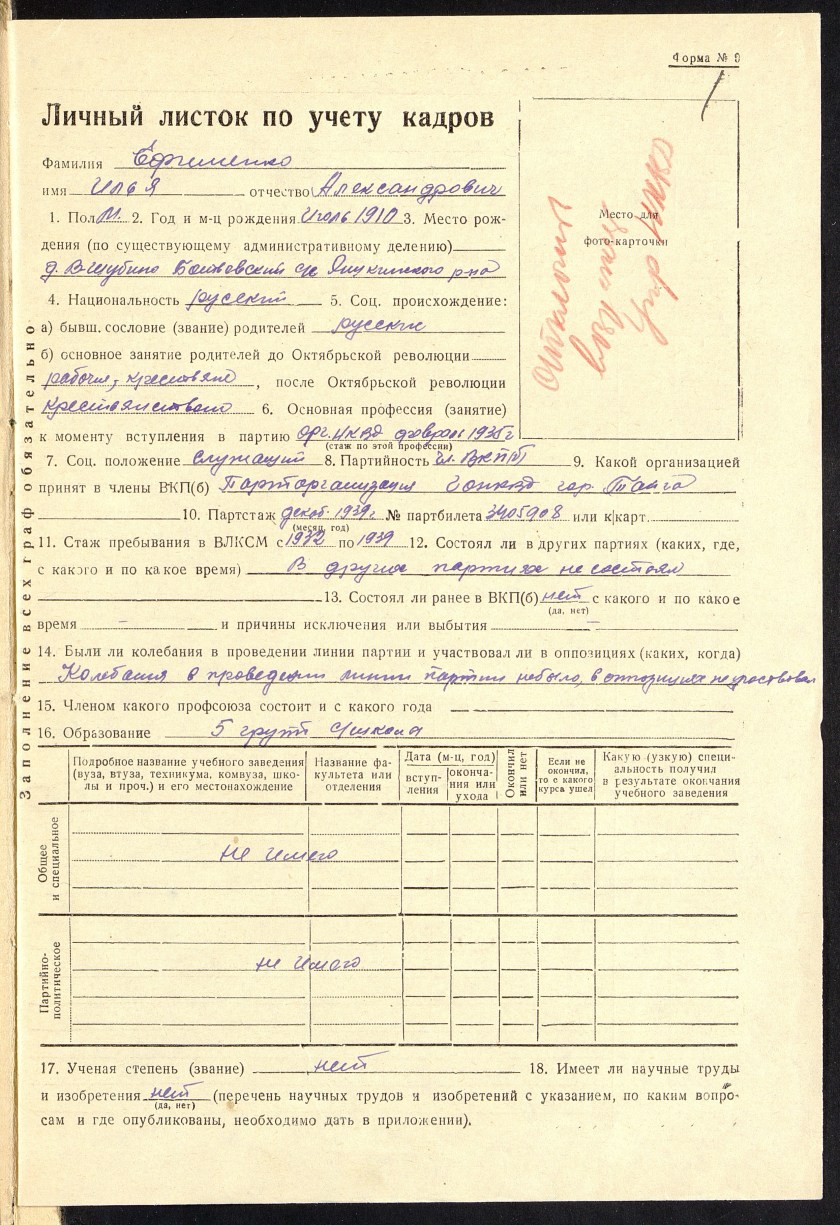 Форма № 9
Личный листок по учету кадров
Фамилия Ефименко
имя Илья отчество Александрович
1. Пол м. 2. Год и м-ц рождения Июль 1910 3. Место рож-
дения (по существующему административному делению)
д. В-Шубино с/с Яшкинского р-на
4. Национальность русский 5. Соц. происхождение:
а) бывш. сословие (звание) родителей русские
б) основное занятие родителей до Октябрьской революции
крестьяне, после Октябрьской революции
6. Основная профессия (занятие)
к моменту вступления в партию НКВД 1935г
(стаж по этой профессии)
7. Соц. положение служащий 8. Партийность чл. ВКП/б 9. Какой организацией
принят в члены ВКП(б) Парторганизация гор. Тайга
10. Партстаж декаб. 1939г. № партбилета 3405908 или к|карт.
(месяц, год)
11. Стаж пребывания в ВЛКСМ с 1932 по 1939 12. Состоял ли в других партиях (каких, где,
с какого и по какое время) В других партиях не состоял
13. Состоял ли ранее в ВКП(б) нет с какого и по какое
(да, нет)
время – и причины исключения или выбытия –
14. Были ли колебания в проведении линии партии и участвовал ли в оппозициях (каких, когда)
Колебания в проведении линии партии небыло, в оппозициях не участвовал
15. Членом какого профсоюза состоит и с какого года
16. Образование 5 групп
Заполнение всех граф обязательно
Место для
фото-карточки
НКВД
Подробное название учебного заведения (вуза, втуза, техникума, комвуза, шко-лы и проч.) и его местонахождение
Название фа-культета или отделения
Дата (м-ц, год)
вступ-ления
оконча-ния или ухода
Окончил или нет
Если не окончил, то с какого курса ушел
Какую (узкую) специ-альность получил в результате окончания учебного заведения
Общее и специальное
не имею
Партийно-политическое
не имею
17. Ученая степень (звание) нет 18. Имеет ли научные труды
и изобретения нет (перечень научных трудов и изобретений с указанием, по каким вопро-
(да, нет)
сам и где опубликованы, необходимо дать в приложении).